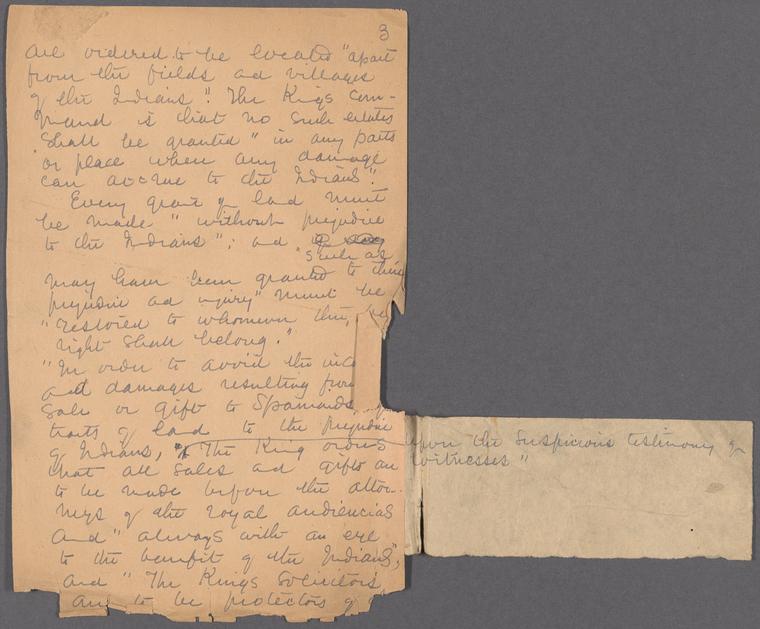 3
are ordered to be located "apart
from the fields and villages
of the Indians". The Kings com-
mand is that no such estates
"shall be granted "in any parts
or place where any damage
can accrue to the Indians".
Every grant of land must
be made "without prejudice
to the Indians"; and
"such as
may have been granted to their
prejudice and injury" must be
"restored to whomever they by
right shall belong."
"In order to avoid the inco
and damages resulting from
sale or gift to Spaniards of
tracts of land to the prejudice
of Indians, upon the suspicious testimony of
witnesses"
The King orders
that all sales and gifts are
to be made before the attor-
neys of the royal audiencias
and "always with an eye
to the benefit of the Indians",
and "The Kings Solicitors
are to be protectors of